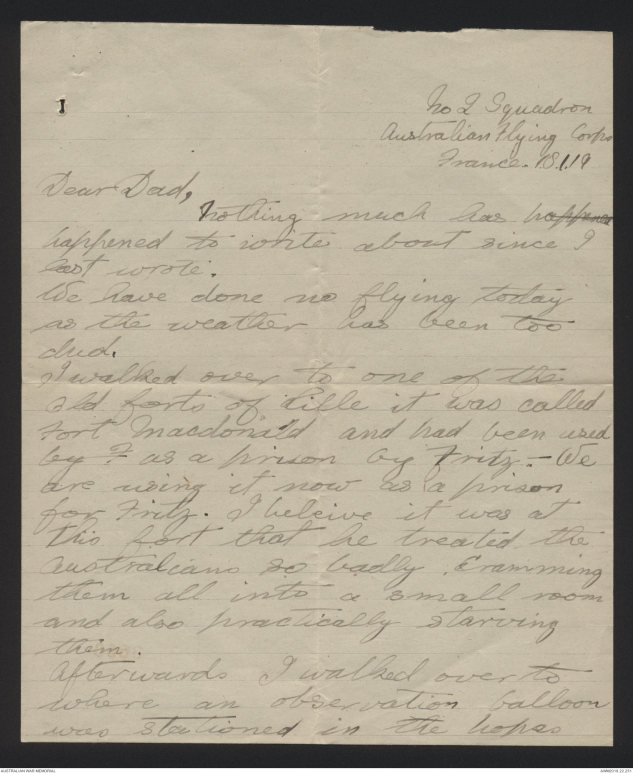 No 2 Squadron
Australian Flying Corps
France. 18.1.19
Dear Dad,
Nothing much has happened
happened to write about since I
last wrote.
We have done no flying today
as the weather has been too
dud.
I walked over to one of the
old forts of Lille it was called
Fort Macdonald and had been used
by F as a prison by Fritz. - We
are using it now as a prison
for Fritz. I beleive it was at
this fort that he treated the
Australians so badly. Cramming
them all into a small room
and also practically starving
them.
Afterwards I walked over to
where an observation balloon
was stationed in the hopes
AUSTRALIAN WAR MEMORIAL